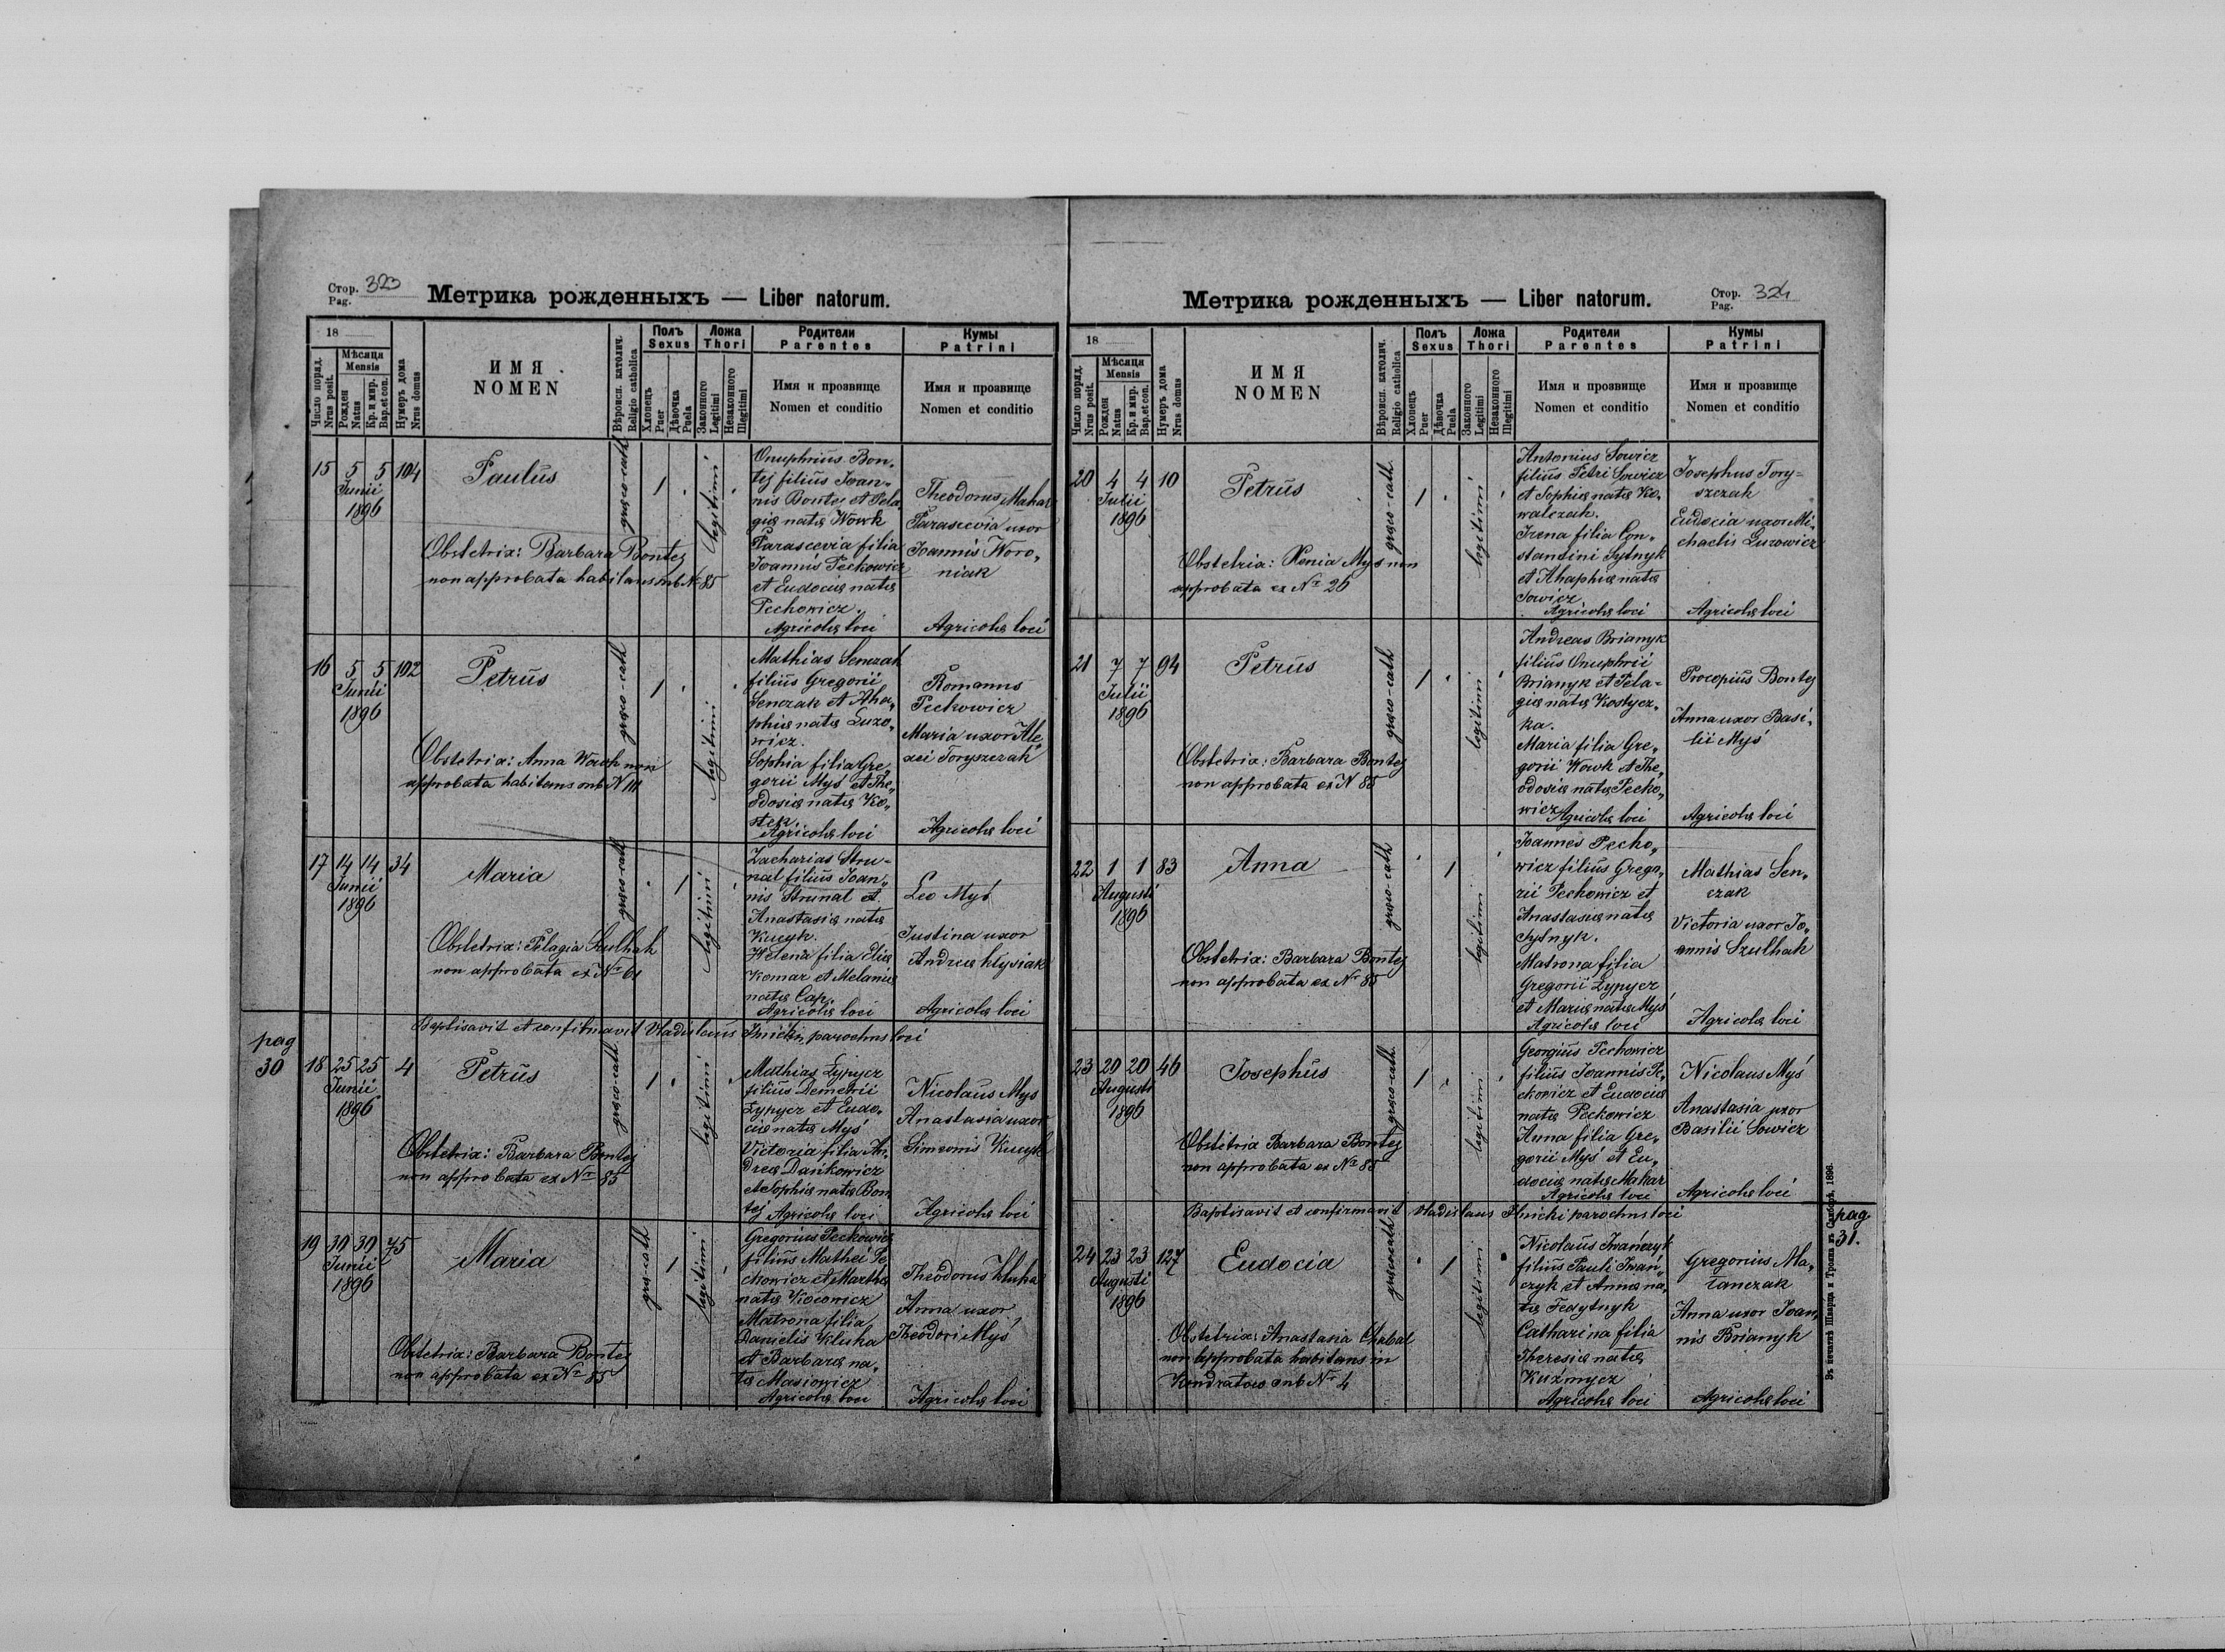 Стор. 323
Pag.
Метрика рожденныхъ — Liber natorum.
18
Число поряд.
Nrus posit.
Мѣсяца
Mensis
Рожден
Natus
Кр. и мир.
Bap. et con.
Нумеръ дома
Nrus domus
ИМЯ
NOMEN
Вѣроисп. католич.
Religio catholica
Полъ
Sexus
Хлопець
Puer
Дѣвочка
Puela
Ложа
Thori
Законного
Legitimi
Незаконного
Illegitimi
Родители
Parentes
Имя и прозвище
Nomen et conditio
Кумы
Patrini
Имя и прозвище
Nomen et conditio
15 5 5 104
Junii
1896
Paulus
Obstetrix: Barbara Bontej
non approbata habitans sub N 85
graeco-cath
1
legitimi
Onuphrius Bon„
tej filius Joan„
nis Bontej et Pela„
giæ natæ Wowk
Parascevia filia
Joannis Pechowicz
et Eudociæ natæ
Pechowicz.
Agricolæ loci
Theodorus Makar
Parascevia uxor
Joannis Woro„
niak
Agricolæ loci
16 5 5 102
Junii
1896
Petrus
Obstetrix: Anna Wowk non
approbata habitans sub N 111
graeco-cath
1
legitimi
Mathias Senczak
filius Gregorii
Senczak et Aha„
phiæ natæ Luzo„
wicz.
Sophia filia Gre„
gorii Myś et The„
odosiæ natæ Ko„
stek.
Agricolæ loci
Romanus
Pechowicz
Maria uxor Ale„
xei Toryszczak
Agricolæ loci
17 14 14 34
Junii
1896
Maria
Obstetrix: Pelagia Szulhak
non approbata ex Nr 61
graeco-cath
1
legitimi
Zacharias Stru-
nal filius Joan„
nis Strunal et
Anastasiæ natæ
Kucyk.
Helena filia Eliæ
Komar et Melaniæ
natæ Cap.
Agricolæ loci
Leo Myś
Justina uxor
Andreæ Hłysiak
Agricolæ loci
Baptisavit et confirmavit Vladislaus Ilnicki parochus loci
pag
30
18 25 25 4
Junii
1896
Petrus
Obstetrix: Barbara Bontej
non approbata ex Nr 85
graeco-cath
1
legitimi
Mathias Zypycz
filius Demetrii
Zypycz et Eudo„
ciæ natæ Myś
Victoria filia An„
dreæ Dańkowicz
et Sophiæ natæ Bon„
tej Agricolæ loci
Nicolaus Myś
Anastasia uxor
Simeonis Kucyk
Agricolæ loci
19 30 30 75
Junii
1896
Maria
Obstetrix: Barbara Bontej
non approbata ex Nr 85
græ-cath
1
legitimi
Gregorius Pechowicz
filius Mathei Pe„
chowicz et Marthæ
natæ Kocowicz
Matrona filia
Danielis Kluka
et Barbaræ na„
tæ Masiowicz
Agricolæ loci
Theodorus Kluka
Anna uxor
Theodori Myś
Agricolæ loci
Метрика рожденныхъ — Liber natorum.
Стор. 324
Pag.
18
Число поряд.
Nrus posit.
Мѣсяца
Mensis
Рожден
Natus
Кр. и мир.
Bap. et con.
Нумеръ дома
Nrus domus
ИМЯ
NOMEN
Вѣроисп. католич.
Religio catholica
Полъ
Sexus
Хлопець
Puer
Дѣвочка
Puela
Ложа
Thori
Законного
Legitimi
Незаконного
Illegitimi
Родители
Parentes
Имя и прозвище
Nomen et conditio
Кумы
Patrini
Имя и прозвище
Nomen et conditio
20 4 4 10
Julii
1896
Petrus
Obstetrix: Xenia Myś non
approbata ex Nr 26
graeco-cath
1
legitimi
Antonius Sowicz
filius Petri Sowicz
et Sophiæ natæ Ko„
walczak.
Irena filia Con„
stantini Sytnyk
et Ahaphiæ natæ
Sowicz
Agricolæ loci
Josephus Tory=
szczak
Eudocia uxor Mi„
chaelis Luzowicz
Agricolæ loci
21 7 7 94
Julii
1896
Petrus
Obstetrix: Barbara Bontej
non approbata ex N 85
graeco-cath
1
legitimi
Andreas Brianyk
filius Onuphrii
Brianyk et Pela=
giæ natæ Kostycz„
ka.
Maria filia Gre„
gorii Wowk et The„
odosiæ natæ Pecho„
wicz Agricolæ loci
Procopius Bontej
Anna uxor Basi„
lii Myś
Agricolæ loci
22 1 1 83
Augusti
1896
Anna
Obstetrix: Barbara Bontej
non approbata ex Nr 85
graeco-cath
1
legitimi
Joannes Pecho„
wicz filius Grego„
rii Pechowicz et
Anastasiæ natæ
Sytnyk.
Matrona filia
Gregorii Zypycz
et Mariæ natæ Myś
Agricolæ loci
Mathias Sen„
czak
Victoria uxor Jo„
annis Szulhak
Agricolæ loci
23 20 20 46
Augusti
1896
Josephus
Obstetrix Barbara Bontej
non approbata ex Nr 85
graeco-cath
1
legitimi
Georgius Pechowicz
filius Joannis Pe„
chowicz et Eudociæ
natæ Pechowicz
Anna filia Gre„
gorii Myś et Eu„
dociæ natæ Makar
Agricolæ loci
Nicolaus Myś
Anastasia uxor
Basilii Sowicz
Agricolæ loci
Baptisavit et confirmavit Vladislaus Ilnicki parochus loci
pag
31.
24 23 23 127
Augusti
1896
Eudocia
Obstetrix: Anastasia Chabal
non approbata habitans in
Kondratow sub Nr 4
graeco-cath
1
legitimi
Nicolaus Iwańczyk
filius Pauli Iwań„
czyk et Annæ na„
tæ Fedytnyk
Catharina filia
Theresiæ natæ
Kuzmycz
Agricolæ loci
Gregorius Ma„
łanczak
Anna uxor Joan„
nis Brianyk
Agricolæ loci
Въ печатнѣ Шварца и Трояна въ Самборѣ, 1896.